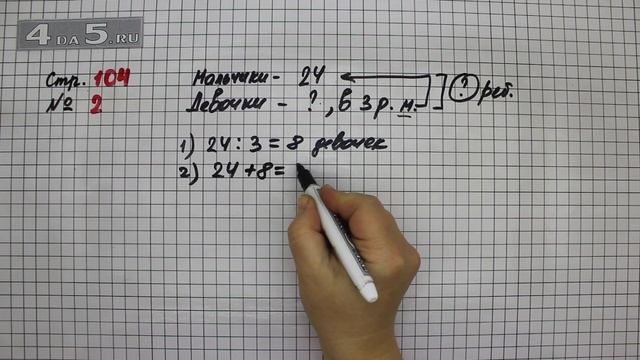 4DA5.RU
Стр. 104
№ 2
Мальчики - 24
Девочки - ?, в 3 р. м. ? реб.
1) 24 : 3 = 8 девочек
2) 24 + 8 =